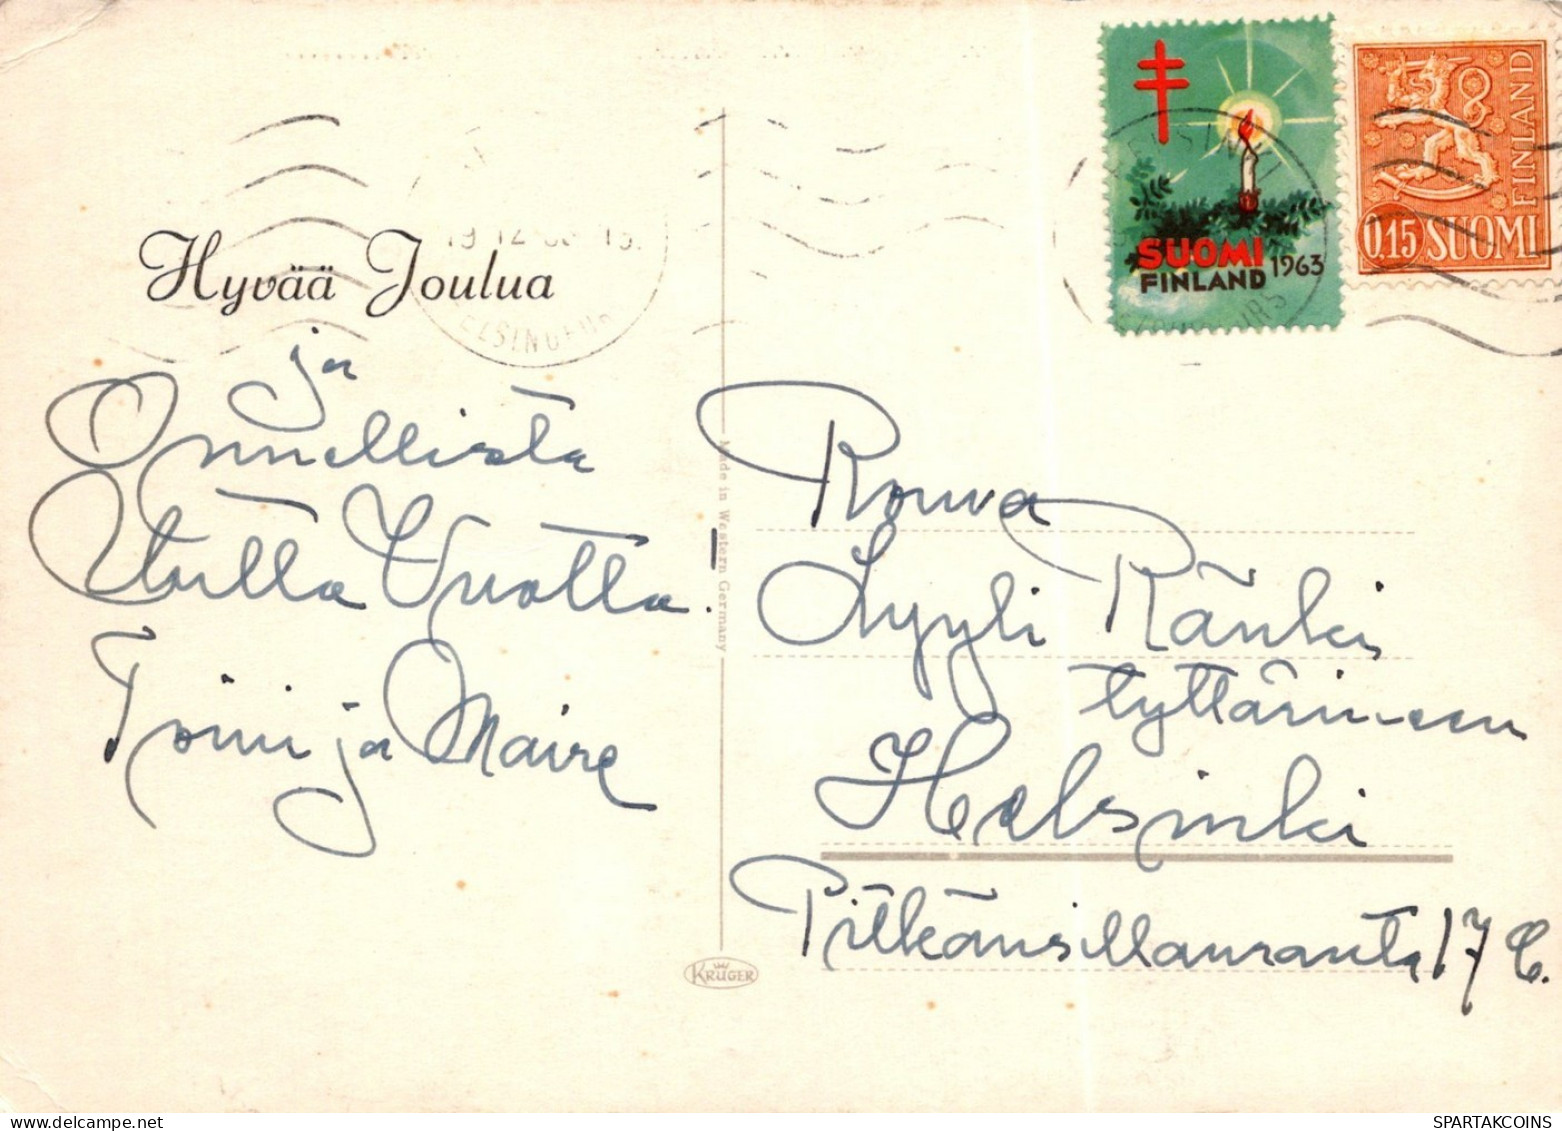 Hyvää Joulua
ja
Onnellista
Uutta Vuotta.
Toini ja Maire
SUOMI
FINLAND 1963
0,15 SUOMI
FINLAND
HELSINKI
19.12
HELSINGFORS
Made in Western Germany
KRÜGER
Rouva
Lyyli Ränki
tyttärineen
Helsinki
Pitkänsillanranta 17 C.
SPARTAKCOINS